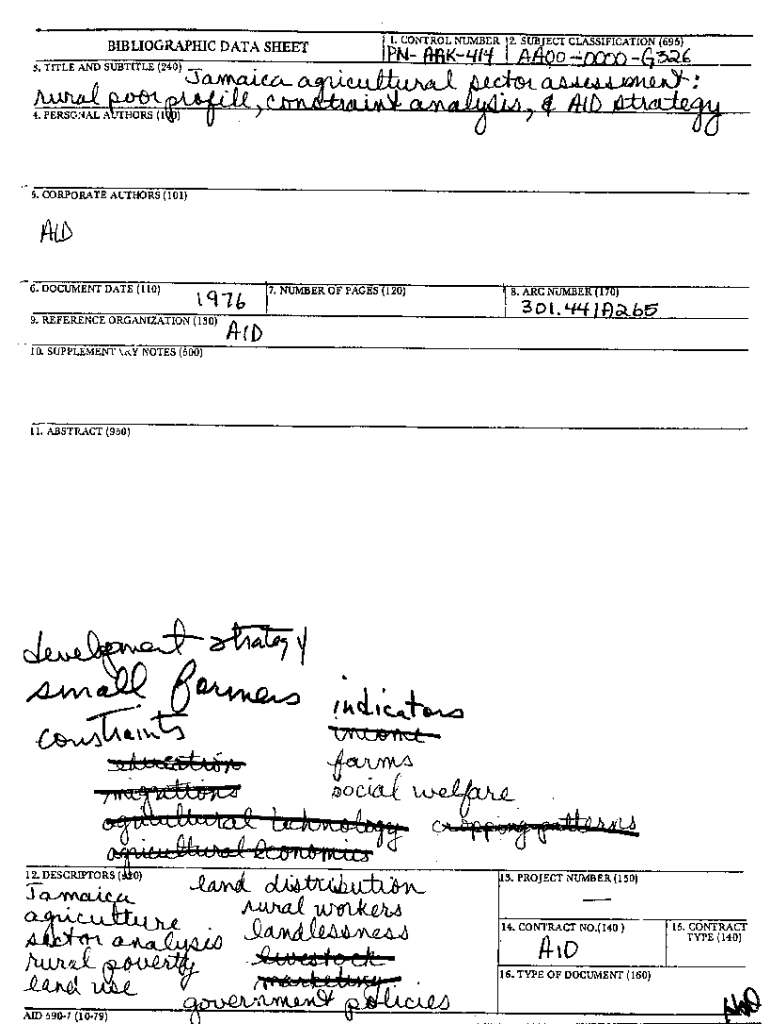 BIBLIOGRAPHIC DATA SHEET
1. CONTROL NUMBER
PN-AAK-414
2. SUBJECT CLASSIFICATION (695)
AA00-0000-G326
3. TITLE AND SUBTITLE (240)
Jamaica agricultural sector assessment:
rural poor profile, constraint analysis, & AID strategy
4. PERSONAL AUTHORS (100)
5. CORPORATE AUTHORS (101)
AID
6. DOCUMENT DATE (110)
1976
7. NUMBER OF PAGES (120)
8. ARC NUMBER (170)
301.441A265
9. REFERENCE ORGANIZATION (130)
AID
10. SUPPLEMENTARY NOTES (500)
11. ABSTRACT (950)
development strategy
small farmers
indicators
constraints
income
education
farms
migrations
social welfare
agricultural technology
cropping patterns
agricultural economics
12. DESCRIPTORS (920)
Jamaica
agriculture
sector analysis
rural poverty
land use
land distribution
rural workers
landlessness
livestock
marketing
government policies
13. PROJECT NUMBER (150)
—
14. CONTRACT NO.(140 )
AID
15. CONTRACT
TYPE (140)
16. TYPE OF DOCUMENT (160)
AID 590-7 (10-79)